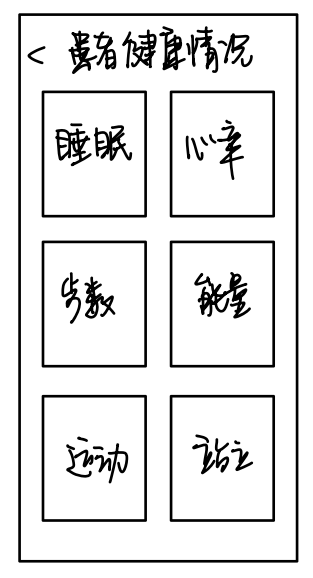 < 患者健康情况
睡眠 心率
步数 能量
运动 站立